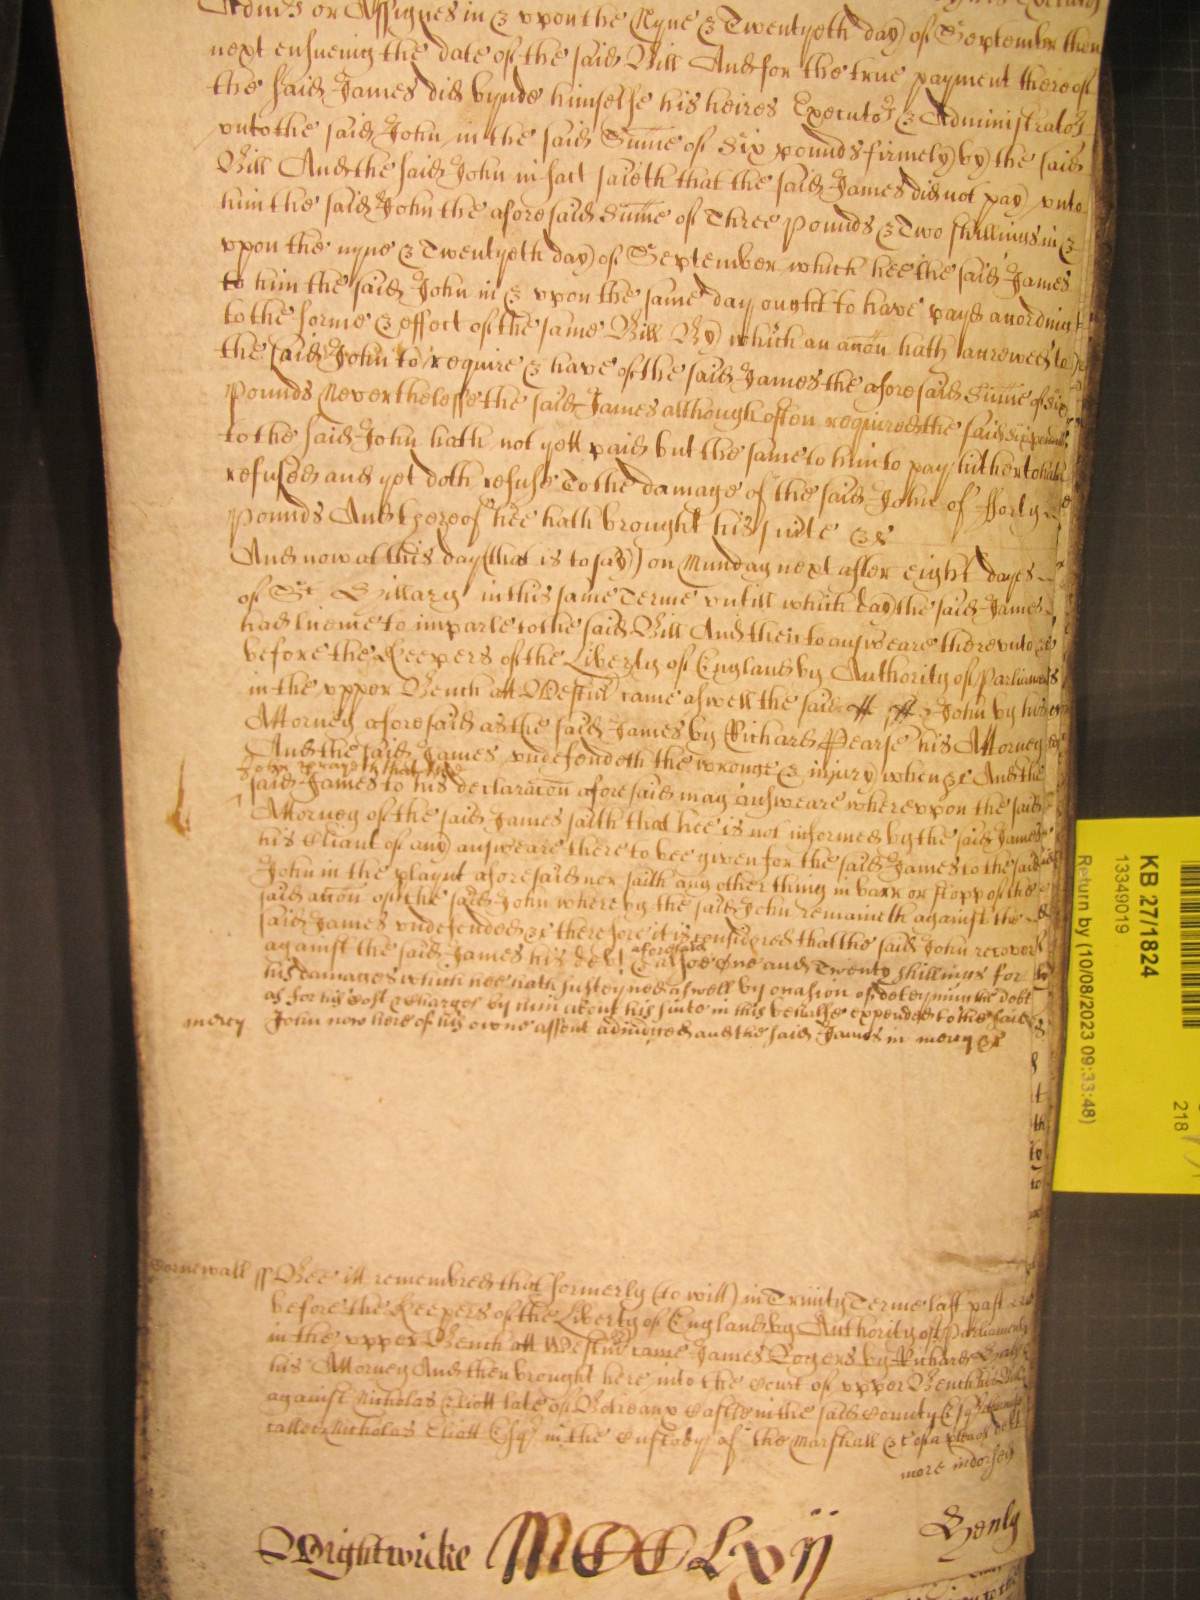 Admrs or Assignes in & vpon the Nyne & Twentyeth day of September then
next ensueing the date of the said Bill And for the true payment thereof
the said James did bynde himselfe his heires Executors & Administrators
vnto the said John in the said Sume of Six pounds firmely by the said
Bill And the said John in fact saieth that the said James did not pay vnto
him the said John the aforesaid Sume of Three pounds & Two shillings in &
vpon the nyne & Twentyeth day of September which hee the said James
to him the said John in & vpon the same day ought to have payd according
to the forme & effect of the same Bill By which an accon hath accrewed to
the said John to require & have of the said James the aforesaid Sume of six
Pounds Neverthelesse the said James although often required the said six pounds
to the said John hath not yett paid but the same to him to pay hitherto hath
refused and yet doth refuse To the damage of the said John of fforty
pounds And thereof hee hath brought his suite &c
And now at this day (that is to say) on Munday next after eight dayes
of St Hillary in this same Terme vntill which day the said James
had licence to imparle to the said Bill And then to answeare therevnto &c
before the Keepers of the Liberty of England by Authority of Parliament
in the vpper Bench att Westmr came aswell the said John by his
Attorney aforesaid as the said James by Richard Pearse his Attorney
And the said James vndefendeth the wronge & iniury when &c And the
John prayeth that the
said James to his declaracon aforesaid may answeare wherevpon the said
Attorney of the said James saith that hee is not informed by the said James
his Cliant of any answeare there to bee given for the said James to the said
John in the playnt aforesaid nor saith any other thing in barr or stopp of the
said accon of the said John whereby the said John remaineth against the
said James vndefended &c therefore it is considered that the said John recover
against the said James his debt aforesaid & alsoe One and Twenty shillings for
his damages which hee hath susteyned aswell by occasion of deteyning the debt
as for his Cost & Charges by him about his suite in this behalfe expended to the said
mercy John now here of his owne assent adiudged and the said James in mercy &c
Cornewall ss Bee itt remembred that formerly (to witt) in Trinity Terme last past
before the Keepers of the Liberty of England by Authority of Parliament
in the vpper Bench att Westmr came James Rogers by Richard
his Attorney And then brought here into the Court of vpper Bench his Bill
against Nicholas Eliott late of Botreaux Castle in the said County Esqr
called Nicholas Eliott Esqr in the Custody of the Marshall &c of a plea of debt
more indorsed
Wightwicke MCCLxvij Henly
KB 27/1824
13349019
Return by (10/08/2023 09:33:48)
218